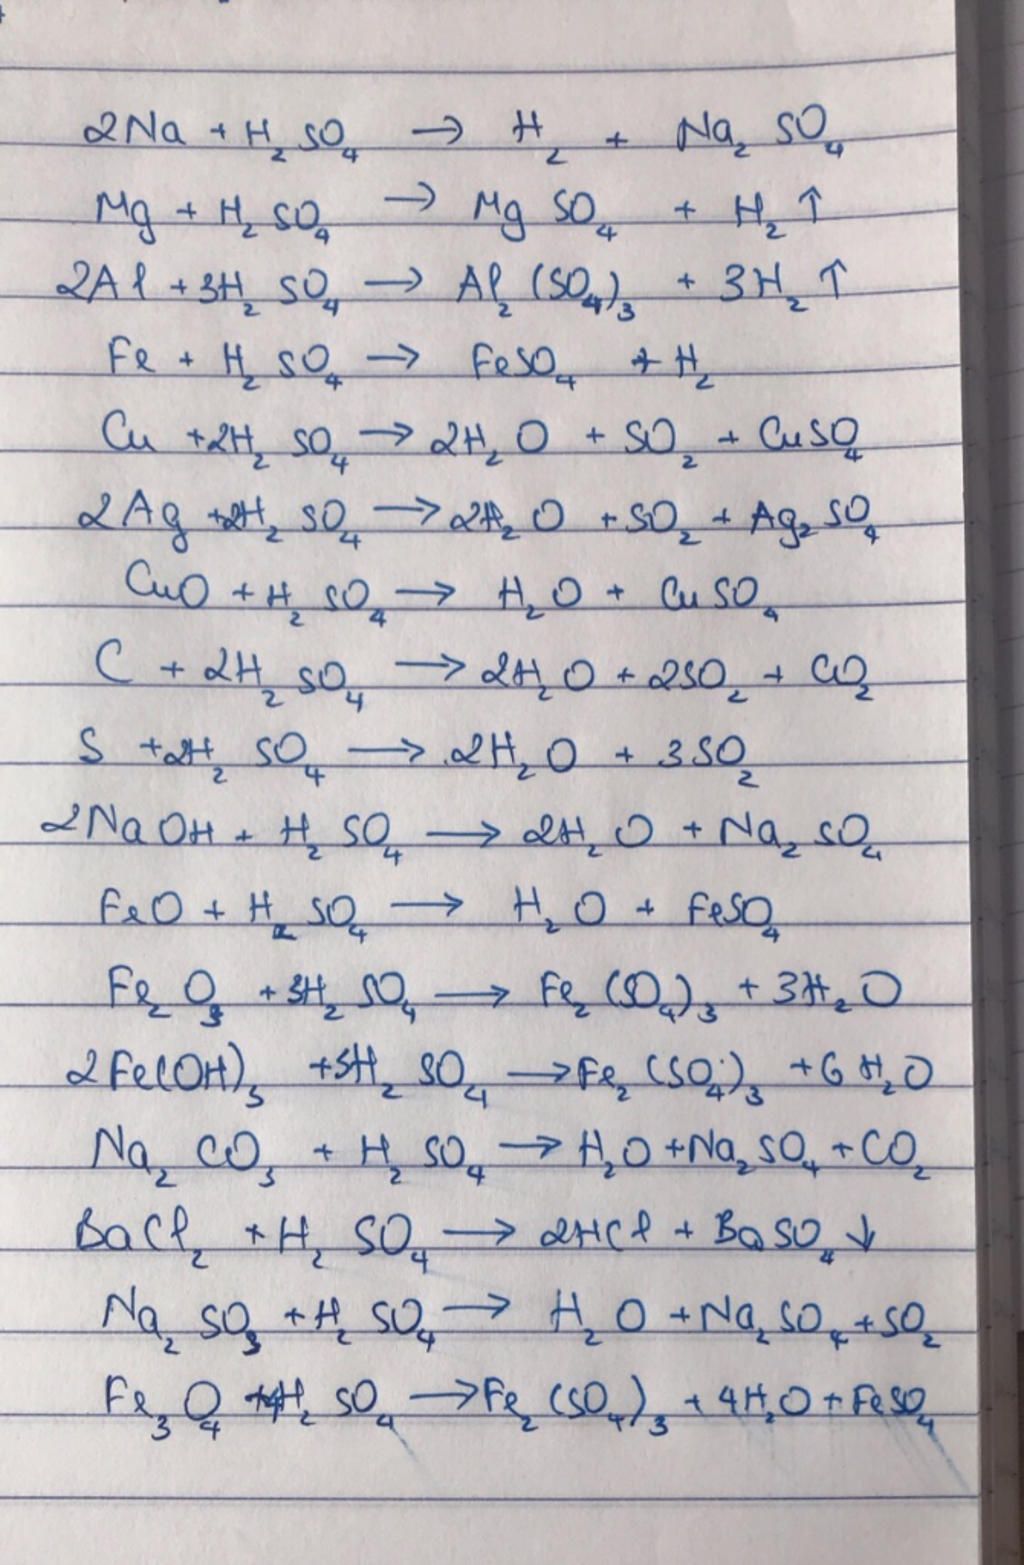 2Na + H₂SO₄ → H₂ + Na₂SO₄
Mg + H₂SO₄ → MgSO₄ + H₂↑
2Al + 3H₂SO₄ → Al₂(SO₄)₃ + 3H₂↑
Fe + H₂SO₄ → FeSO₄ + H₂
Cu + 2H₂SO₄ → 2H₂O + SO₂ + CuSO₄
2Ag + 2H₂SO₄ → 2H₂O + SO₂ + Ag₂SO₄
CuO + H₂SO₄ → H₂O + CuSO₄
C + 2H₂SO₄ → 2H₂O + 2SO₂ + CO₂
S + 2H₂SO₄ → 2H₂O + 3SO₂
2NaOH + H₂SO₄ → 2H₂O + Na₂SO₄
FeO + H₂SO₄ → H₂O + FeSO₄
Fe₂O₃ + 3H₂SO₄ → Fe₂(SO₄)₃ + 3H₂O
2Fe(OH)₃ + 3H₂SO₄ → Fe₂(SO₄)₃ + 6H₂O
Na₂CO₃ + H₂SO₄ → H₂O + Na₂SO₄ + CO₂
BaCl₂ + H₂SO₄ → 2HCl + BaSO₄↓
Na₂SO₃ + H₂SO₄ → H₂O + Na₂SO₄ + SO₂
Fe₃O₄ + 4H₂SO₄ → Fe₂(SO₄)₃ + 4H₂O + FeSO₄